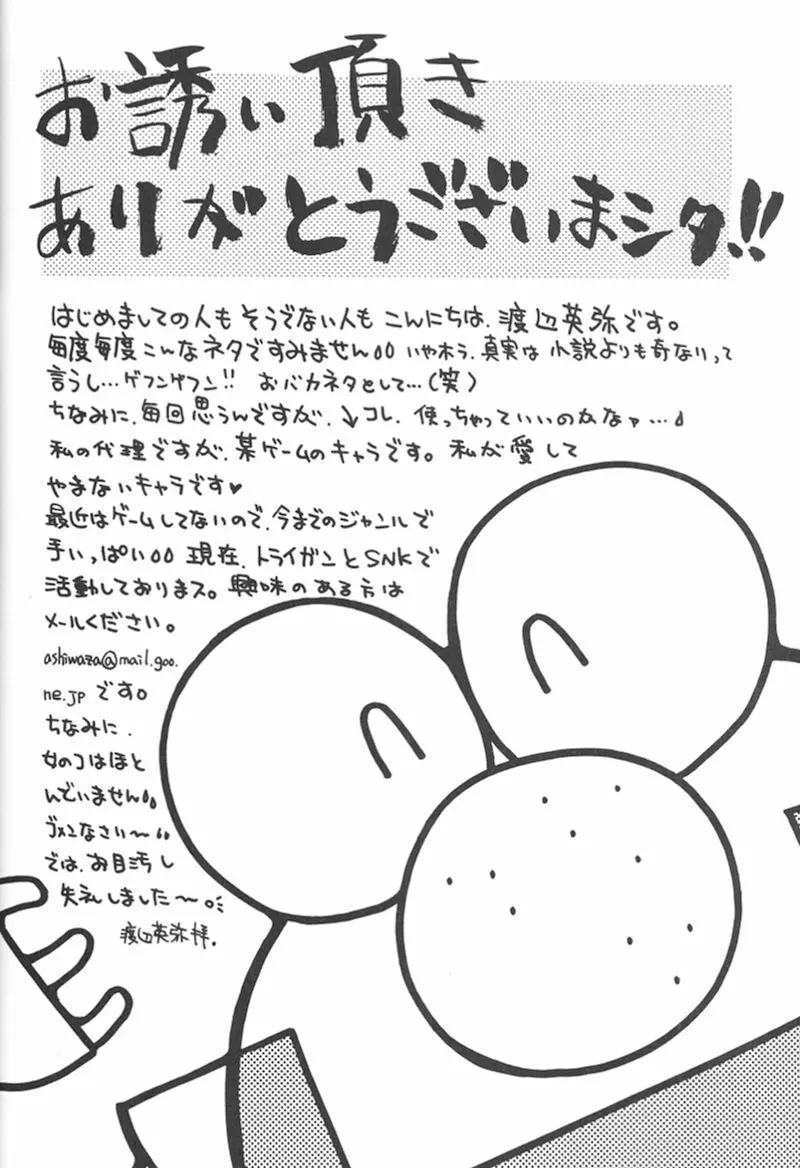 お誘い頂き
ありがとうございまシタ!!
はじめましての人もそうでない人もこんにちは、渡辺英弥です。
毎度毎度こんなネタですみません いやホラ、真実は小説よりも奇なりって
言うし…ゲフンゲフン!! おバカネタとして…(笑)
ちなみに、毎回思うんですが、↓コレ、使っちゃっていいのかなァ…
私の代理ですが、某ゲームのキャラです。私が愛して
やまないキャラです♥
最近はゲームしてないので、今までのジャンルで
手いっぱい 現在、トライガンとSNKで
活動しておりまス。興味のある方は
メールください。
ashiwaza@mail.goo.
ne.jpです。
ちなみに、
女のコはほと
んでいません
ゴメンなさい〜
では、お目汚し
失礼しました〜。
渡辺英弥拝.